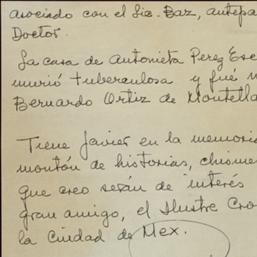 asociado con el Lic. Baz, antepa
Doctor.
La casa de Antonieta Perez Esc
murió tuberculosa y fué m
Bernardo Ortiz de Montella
Tiene Javier en la memoria
montón de historias, chismes
que creo serán de interés
gran amigo, el Ilustre Cro
la Ciudad de Mex.